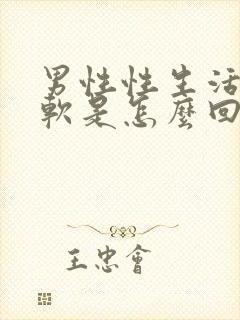 男性性生活
軟是怎麼回
王忠會